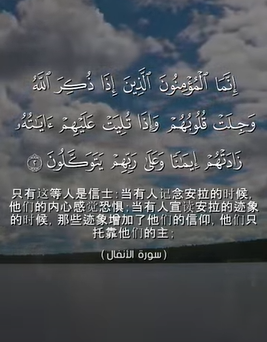 إِنَّمَا ٱلْمُؤْمِنُونَ ٱلَّذِينَ إِذَا ذُكِرَ ٱللَّهُ
وَجِلَتْ قُلُوبُهُمْ وَإِذَا تُلِيَتْ عَلَيْهِمْ ءَايَٰتُهُۥ
زَادَتْهُمْ إِيمَٰنًا وَعَلَىٰ رَبِّهِمْ يَتَوَكَّلُونَ ٢
只有这等人是信士:当有人记念安拉的时候,
他们的内心感觉恐惧;当有人宣读安拉的迹象
的时候, 那些迹象增加了他们的信仰, 他们只
托靠他们的主;
( سورة الأنفال )